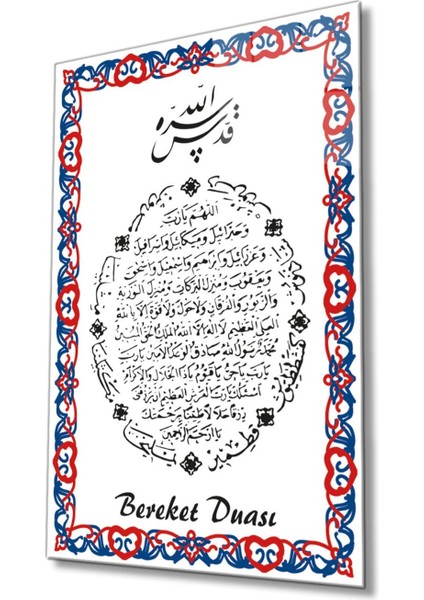 قدس الله سره
اللهم يا رب
وجبرائيل وميكائيل واسرافيل
وعزرائيل وابرهيم واسمعيل واسحق
ويعقوب ومنزل البركات ومنزل التورية
والزبور والفرقان ولا حول ولا قوة الا بالله
العلي العظيم لا اله الا الله الملك الحق المبين
محمد رسول الله صادق الوعد الامين يا رب
يا رب يا حي يا قيوم يا ذا الجلال والاكرام
اسئلك يا رب العرش العظيم ان ترزقني
رزقا حلالا طيبا برحمتك
يا ارحم الراحمين
Bereket Duası